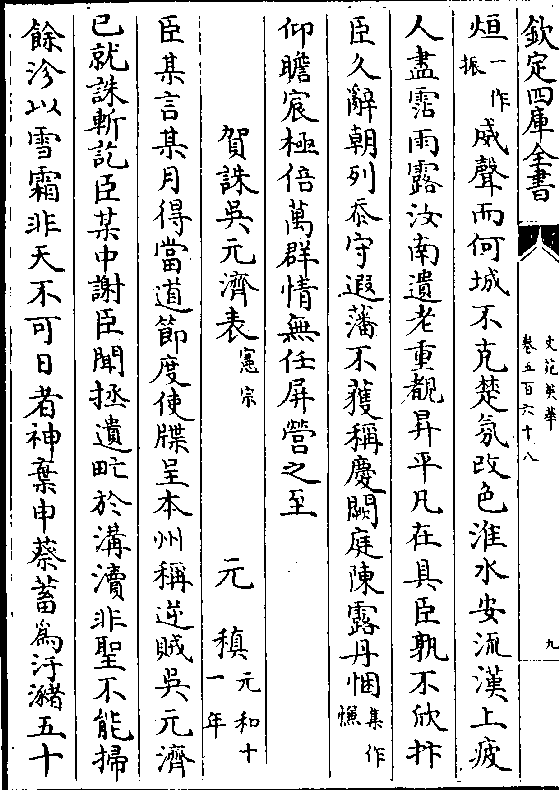 欽定四庫全書
文苑英華
卷五百六十八
九
烜一作振威聲而何城不克楚氛改色淮水安流漢上疲
人盡霑雨露汝南遺老重覩昇平凡在具臣孰不欣抃
臣久辭朝列忝守遐藩不獲稱慶闕庭陳露丹悃集作懇
仰瞻宸極倍萬群情無任屏營之至
賀誅吳元濟表憲宗 元稹元和十一年
臣某言某月得當道節度使牒呈本州稱逆賊吳元濟
已就誅斬訖臣某中謝臣聞拯遺甿於溝瀆非聖不能掃
餘沴以雪霜非天不可日者神棄申蔡蓄為汙瀦五十